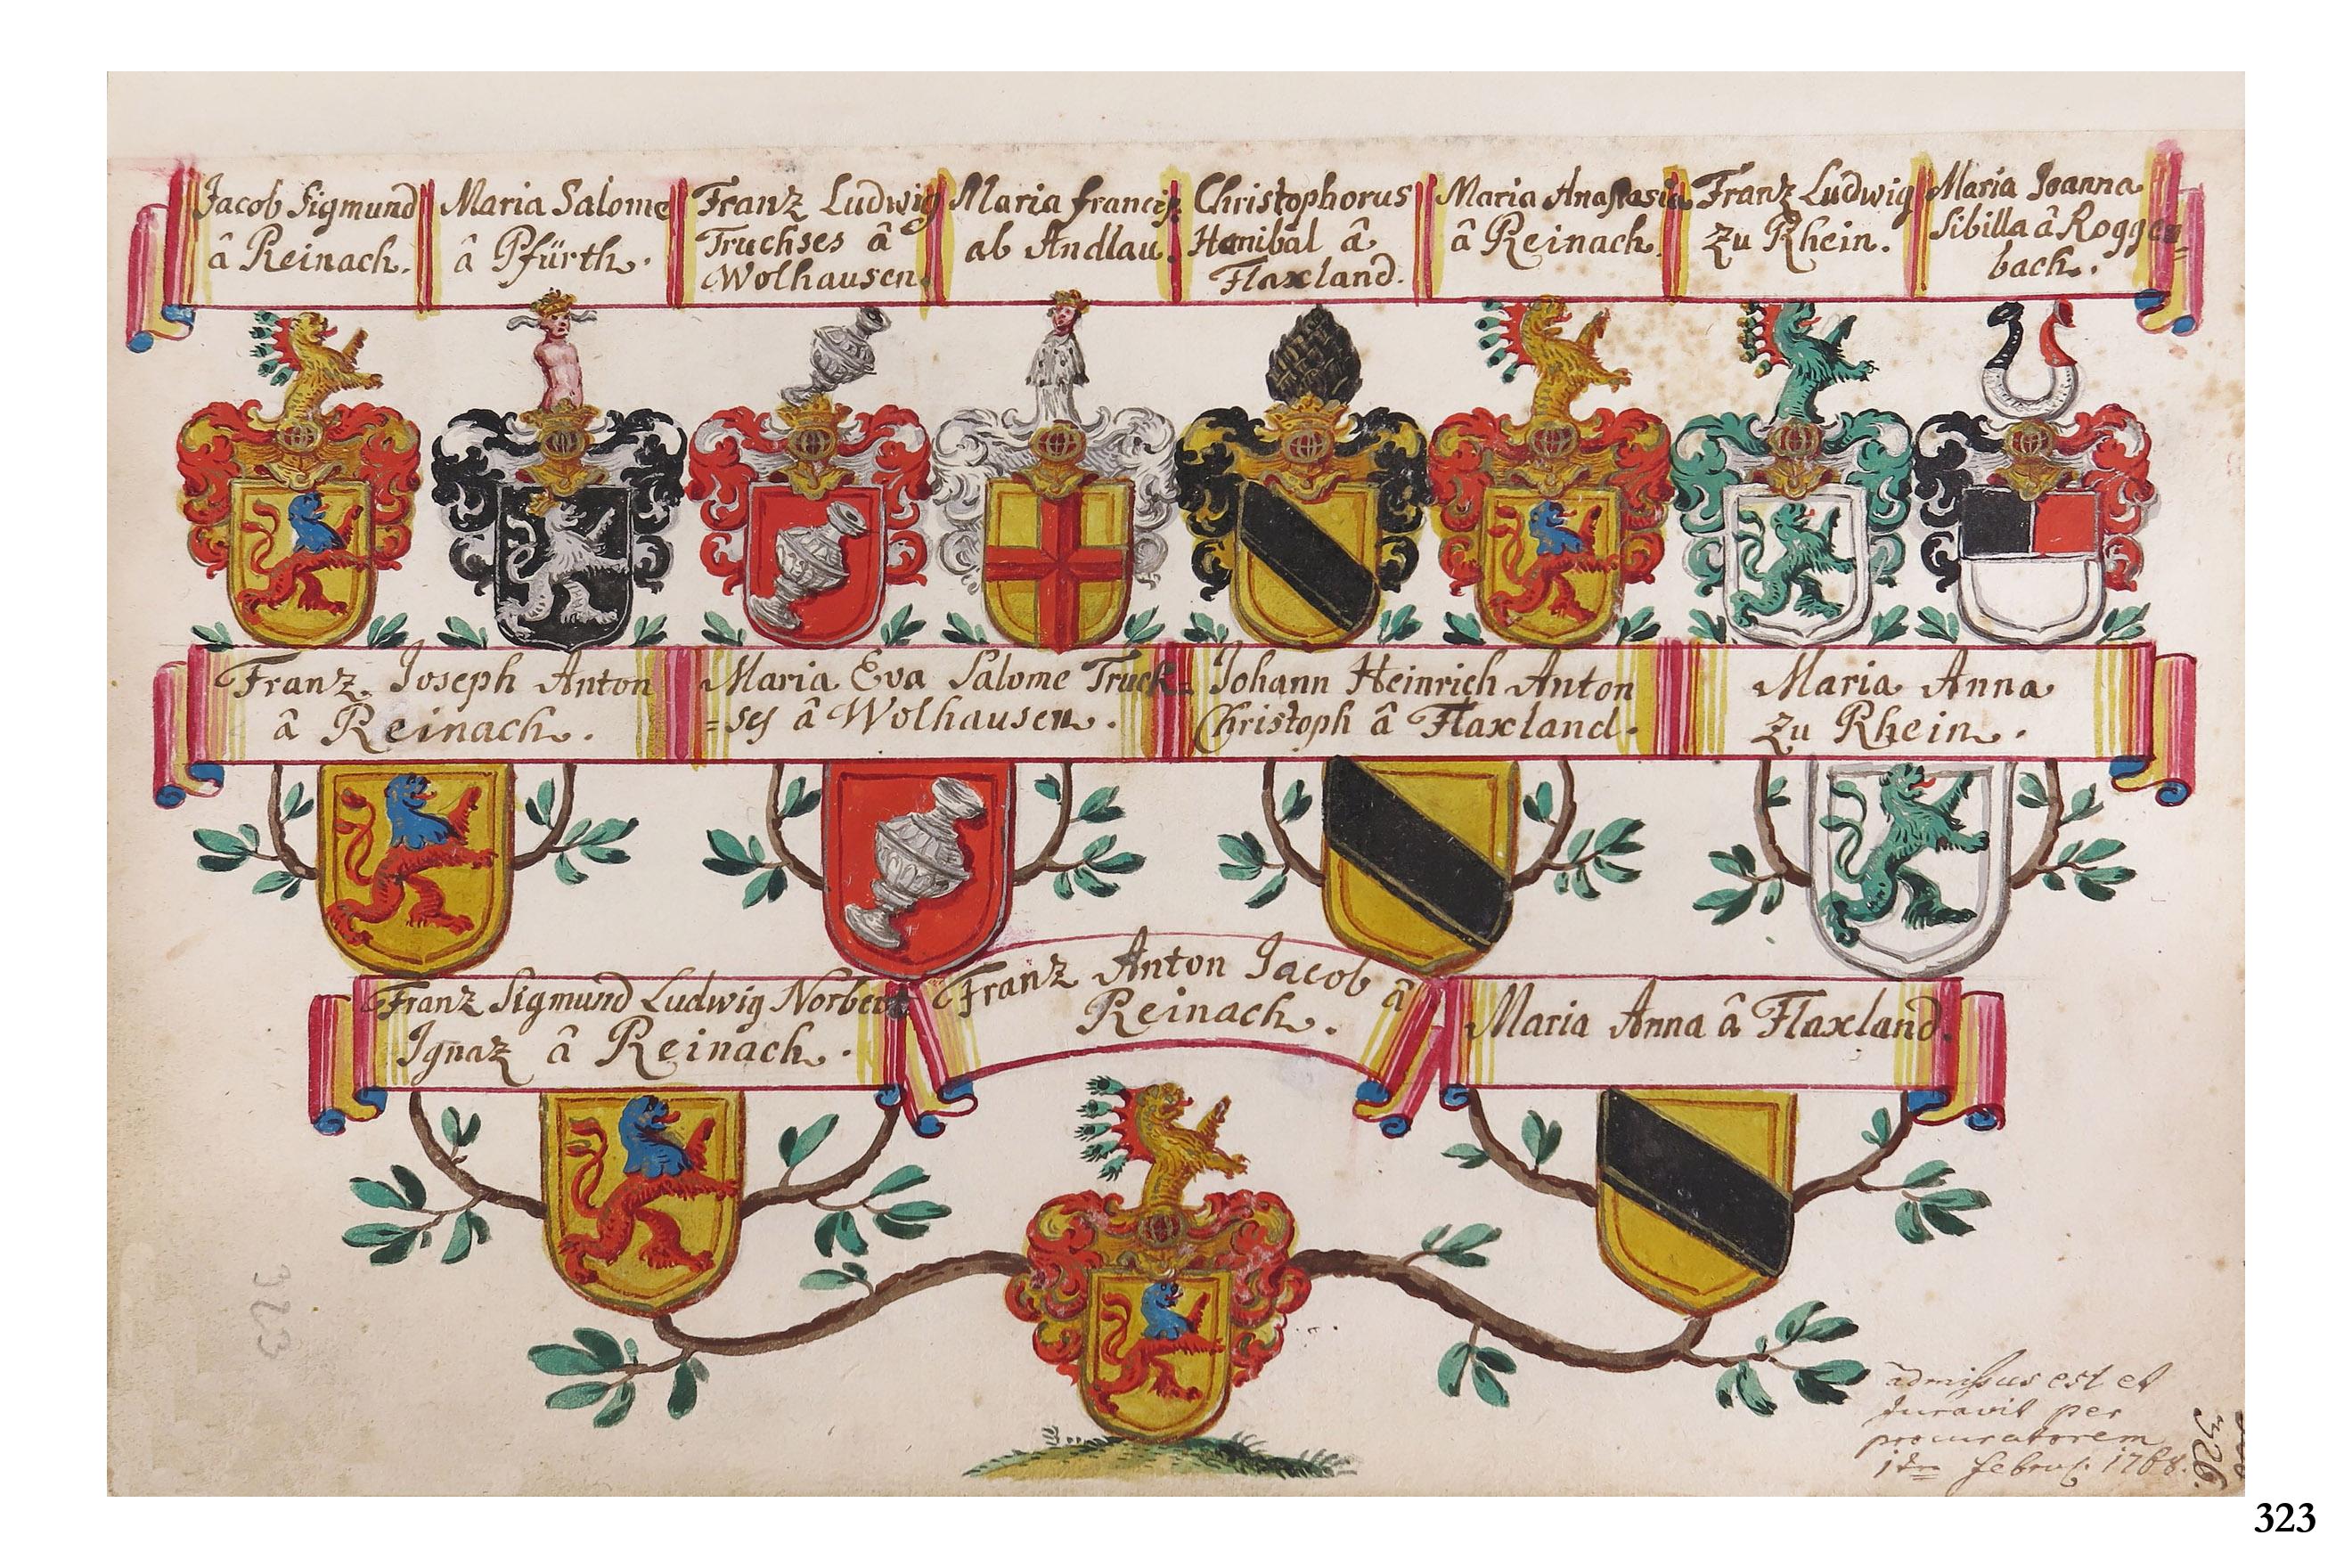 Jacob Sigmund
â Reinach.
Maria Salome
â Pfürth.
Franz Ludwig
Truchses â
Wolhausen.
Maria francis.
ab Andlau.
Christophorus
Hanibal â
Flaxland.
Maria Anastasia
â Reinach.
Franz Ludwig
zu Rhein.
Maria Joanna
Sibilla â Roggen=
bach.
Franz Joseph Anton
â Reinach.
Maria Eva Salome Truck=
=ses â Wolhausen.
Johann Heinrich Anton
Christoph â Flaxland.
Maria Anna
zu Rhein.
Franz Sigmund Ludwig Norbert
Ignaz â Reinach.
Franz Anton Jacob â
Reinach.
Maria Anna â Flaxland.
323
admissus est et
Juravit per
procuratorem
1ma februa. 1768.
326.
323